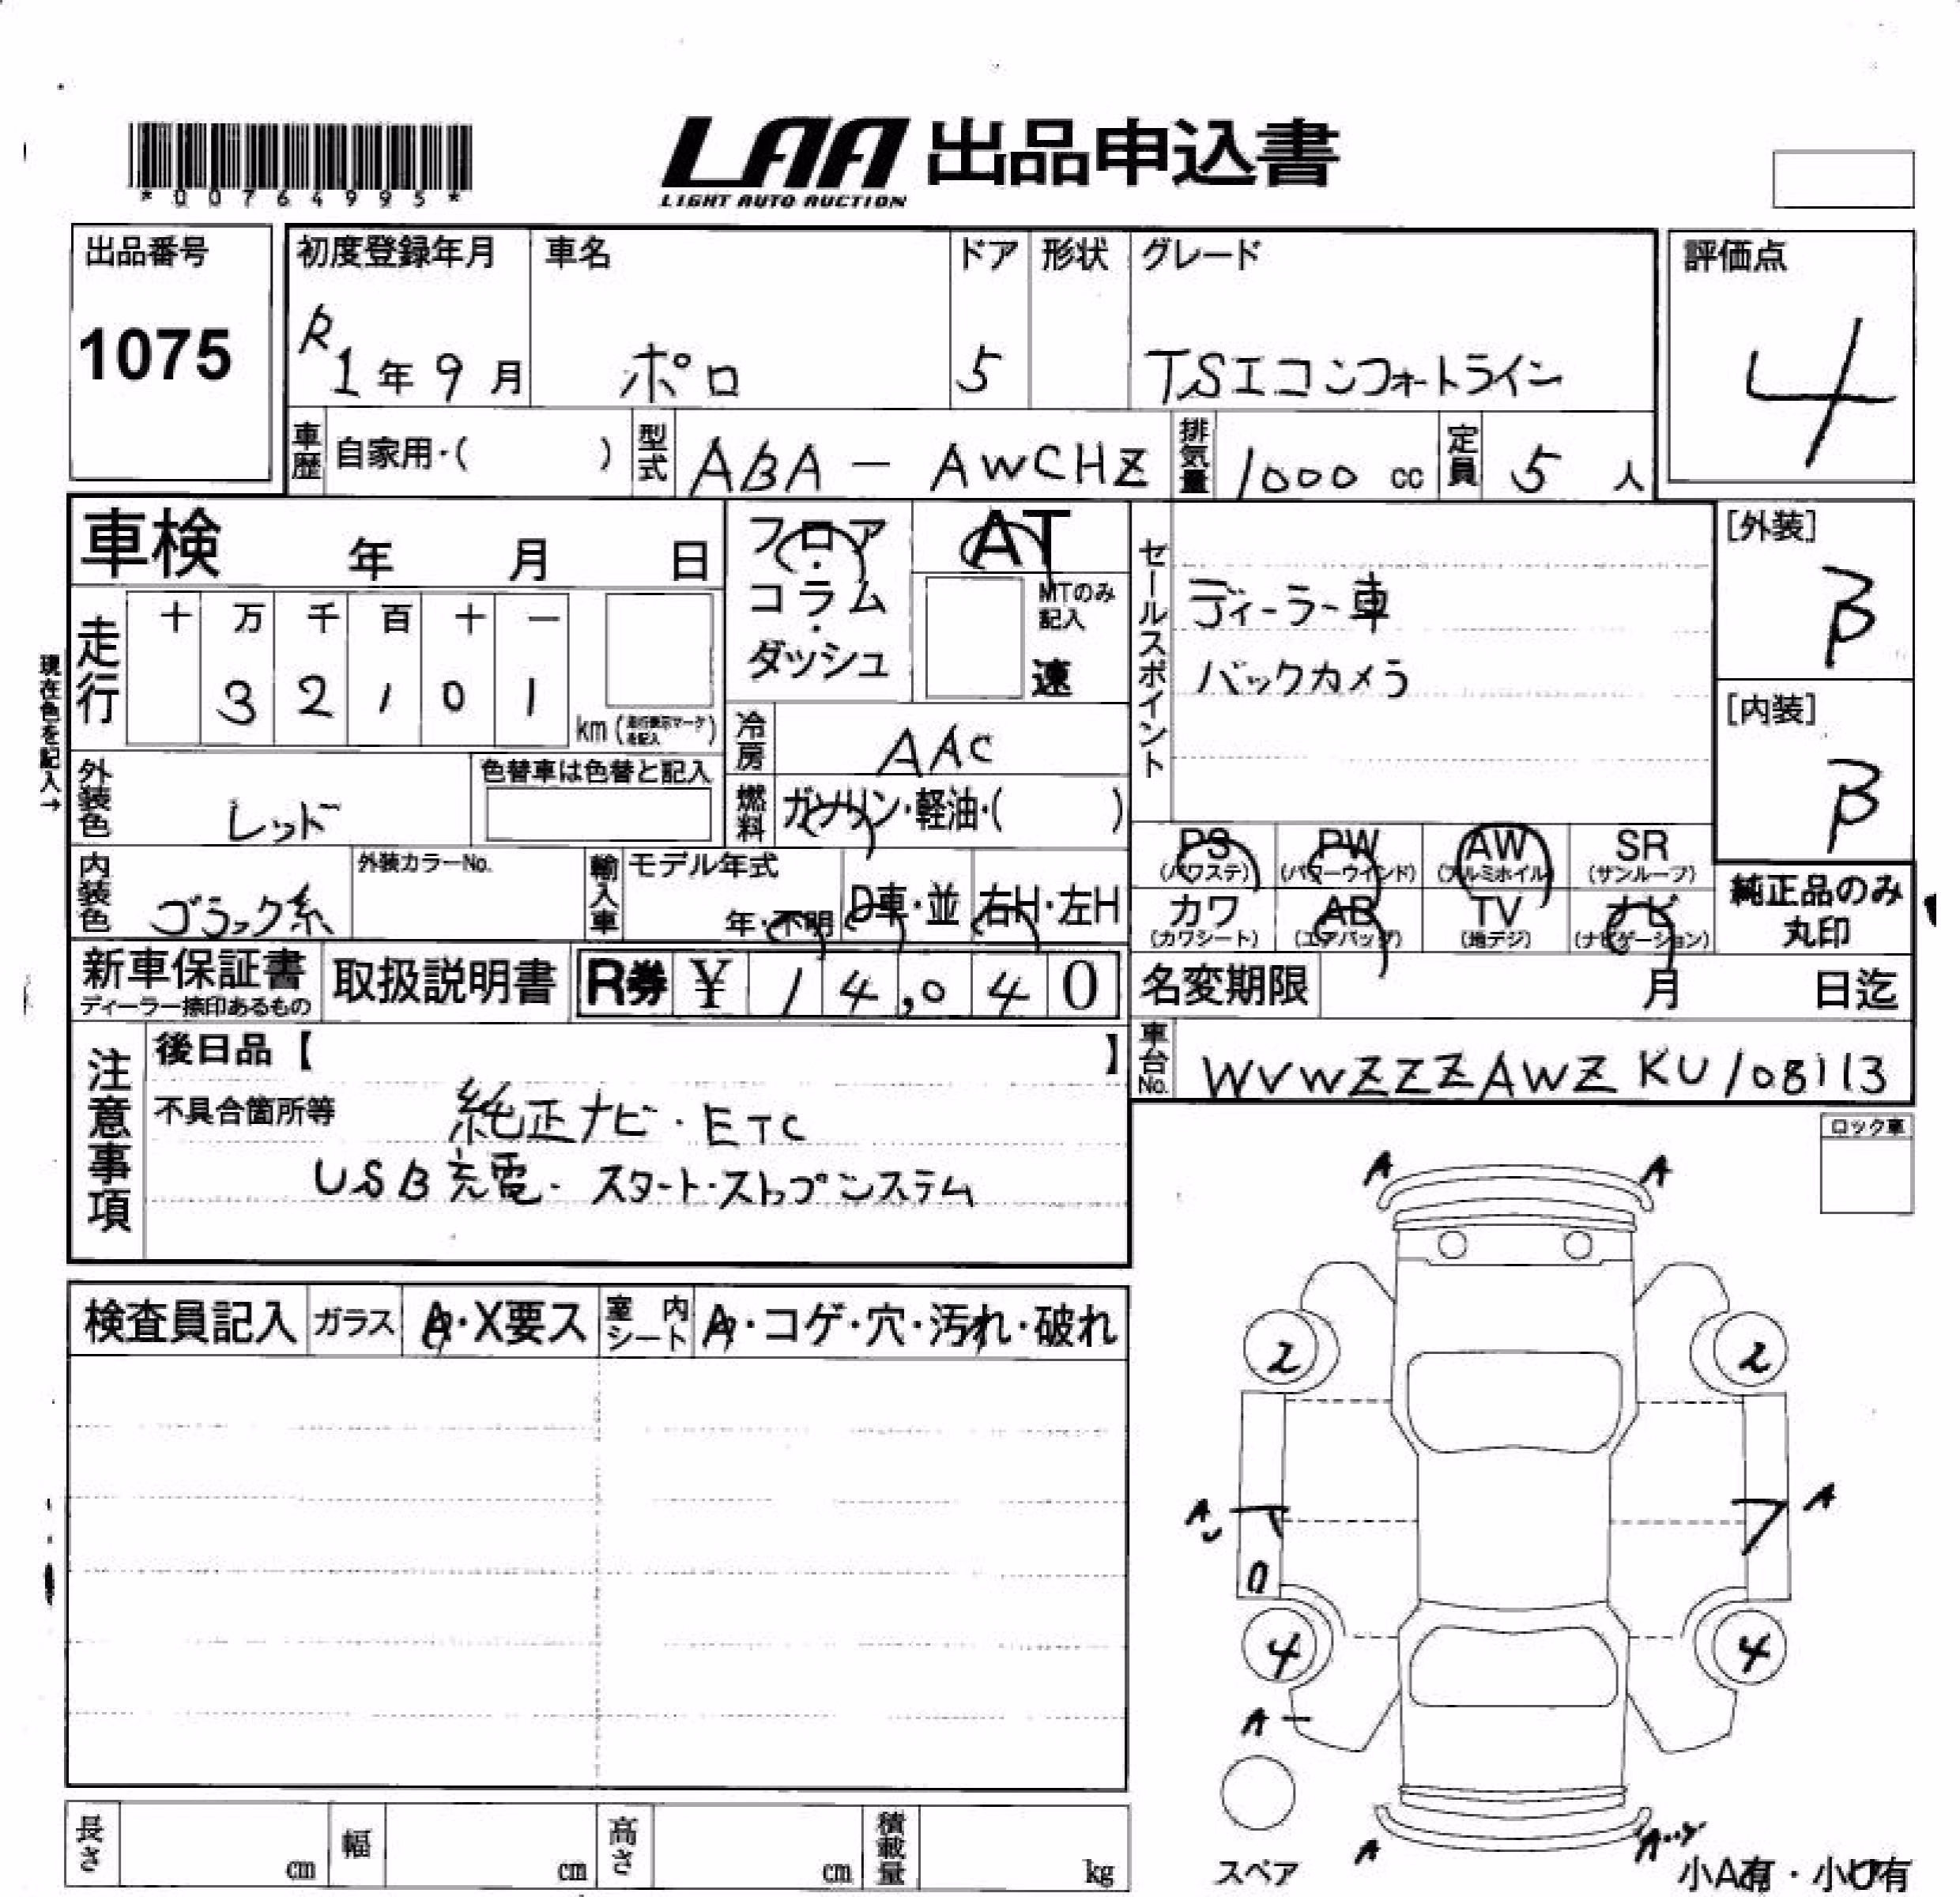 *00764995*
LAA 出品申込書
LIGHT AUTO AUCTION
出品番号
1075
初度登録年月 車名 ドア 形状 グレード
R1年9月 ポロ 5 TSIコンフォートライン
評価点
4
車歴 自家用・( ) 型式 ABA - AWCHZ 排気量 1000 cc 定員 5 人
車検 年 月 日
フロア・コラム・ダッシュ
AT
MTのみ記入
速
セールスポイント
ディーラー車
バックカメラ
[外装]
B
[内装]
B
現在色を記入→
走行 十 万 千 百 十 一
3 2 1 0 1 km (走行表示マークを記入)
冷房 AAC
外装色 レッド 色替車は色替と記入
燃料 ガソリン・軽油・( )
内装色 ブラック系 外装カラーNo.
輸入車 モデル年式 年・不明 D車・並 右H・左H
PS (パワステ) PW (パワーウインド) AW (アルミホイル) SR (サンルーフ)
カワ (カワシート) AB (エアバッグ) TV (地デジ) ナビ (ナビゲーション)
純正品のみ丸印
新車保証書 ディーラー捺印あるもの 取扱説明書 R券 ¥ 14,040
名変期限 月 日迄
車台No. WVWZZZAWZKU108113
注意事項
後日品【 】
不具合箇所等 純正ナビ・ETC
USB充電・スタート・ストップシステム
ロック車
検査員記入 ガラス A・X要ス 室内シート A・コゲ・穴・汚れ・破れ
A A
2 2
A A
4 4
A
A
スペア
小A有・小U有
長さ cm 幅 cm 高さ cm 積載量 kg